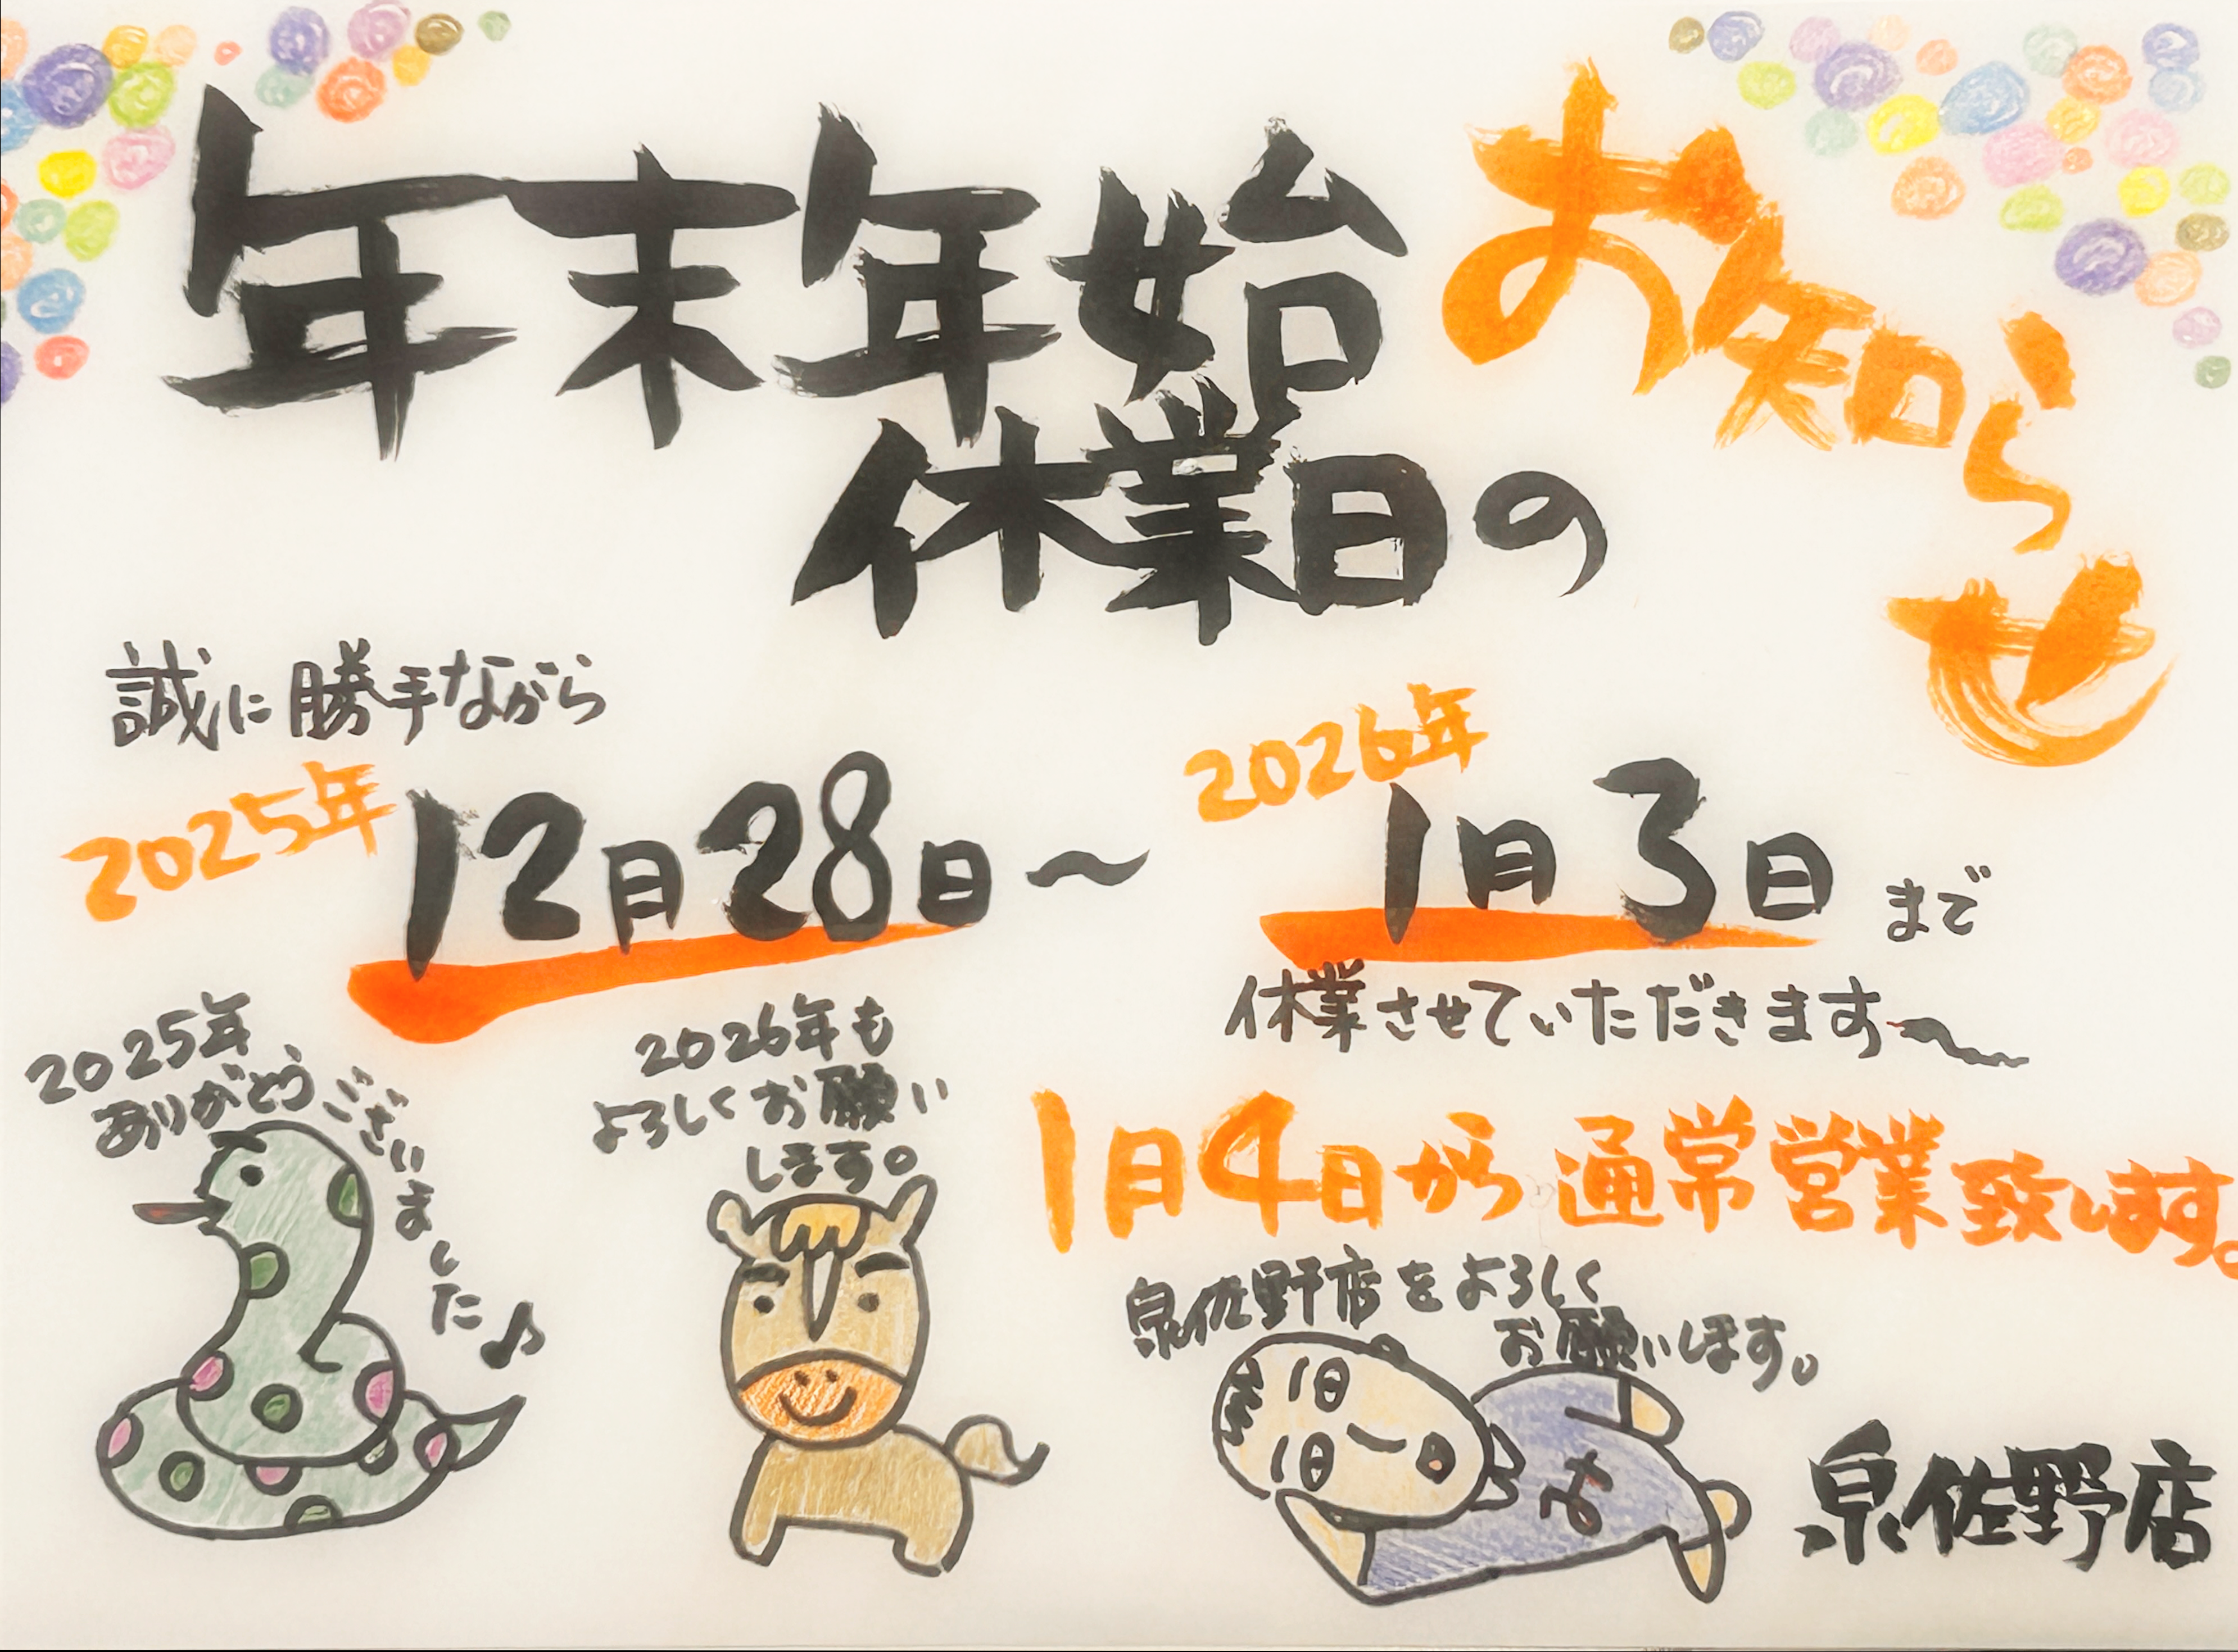 年末年始
休業日の
お知らせ
誠に勝手ながら
2025年
12月28日～
2026年
1月3日まで
休業させていただきます～
2025年
ありがとうございました♪
2026年も
よろしくお願い
します。
1月4日から通常営業致します。
泉佐野店をよろしく
お願いします。
泉佐野店